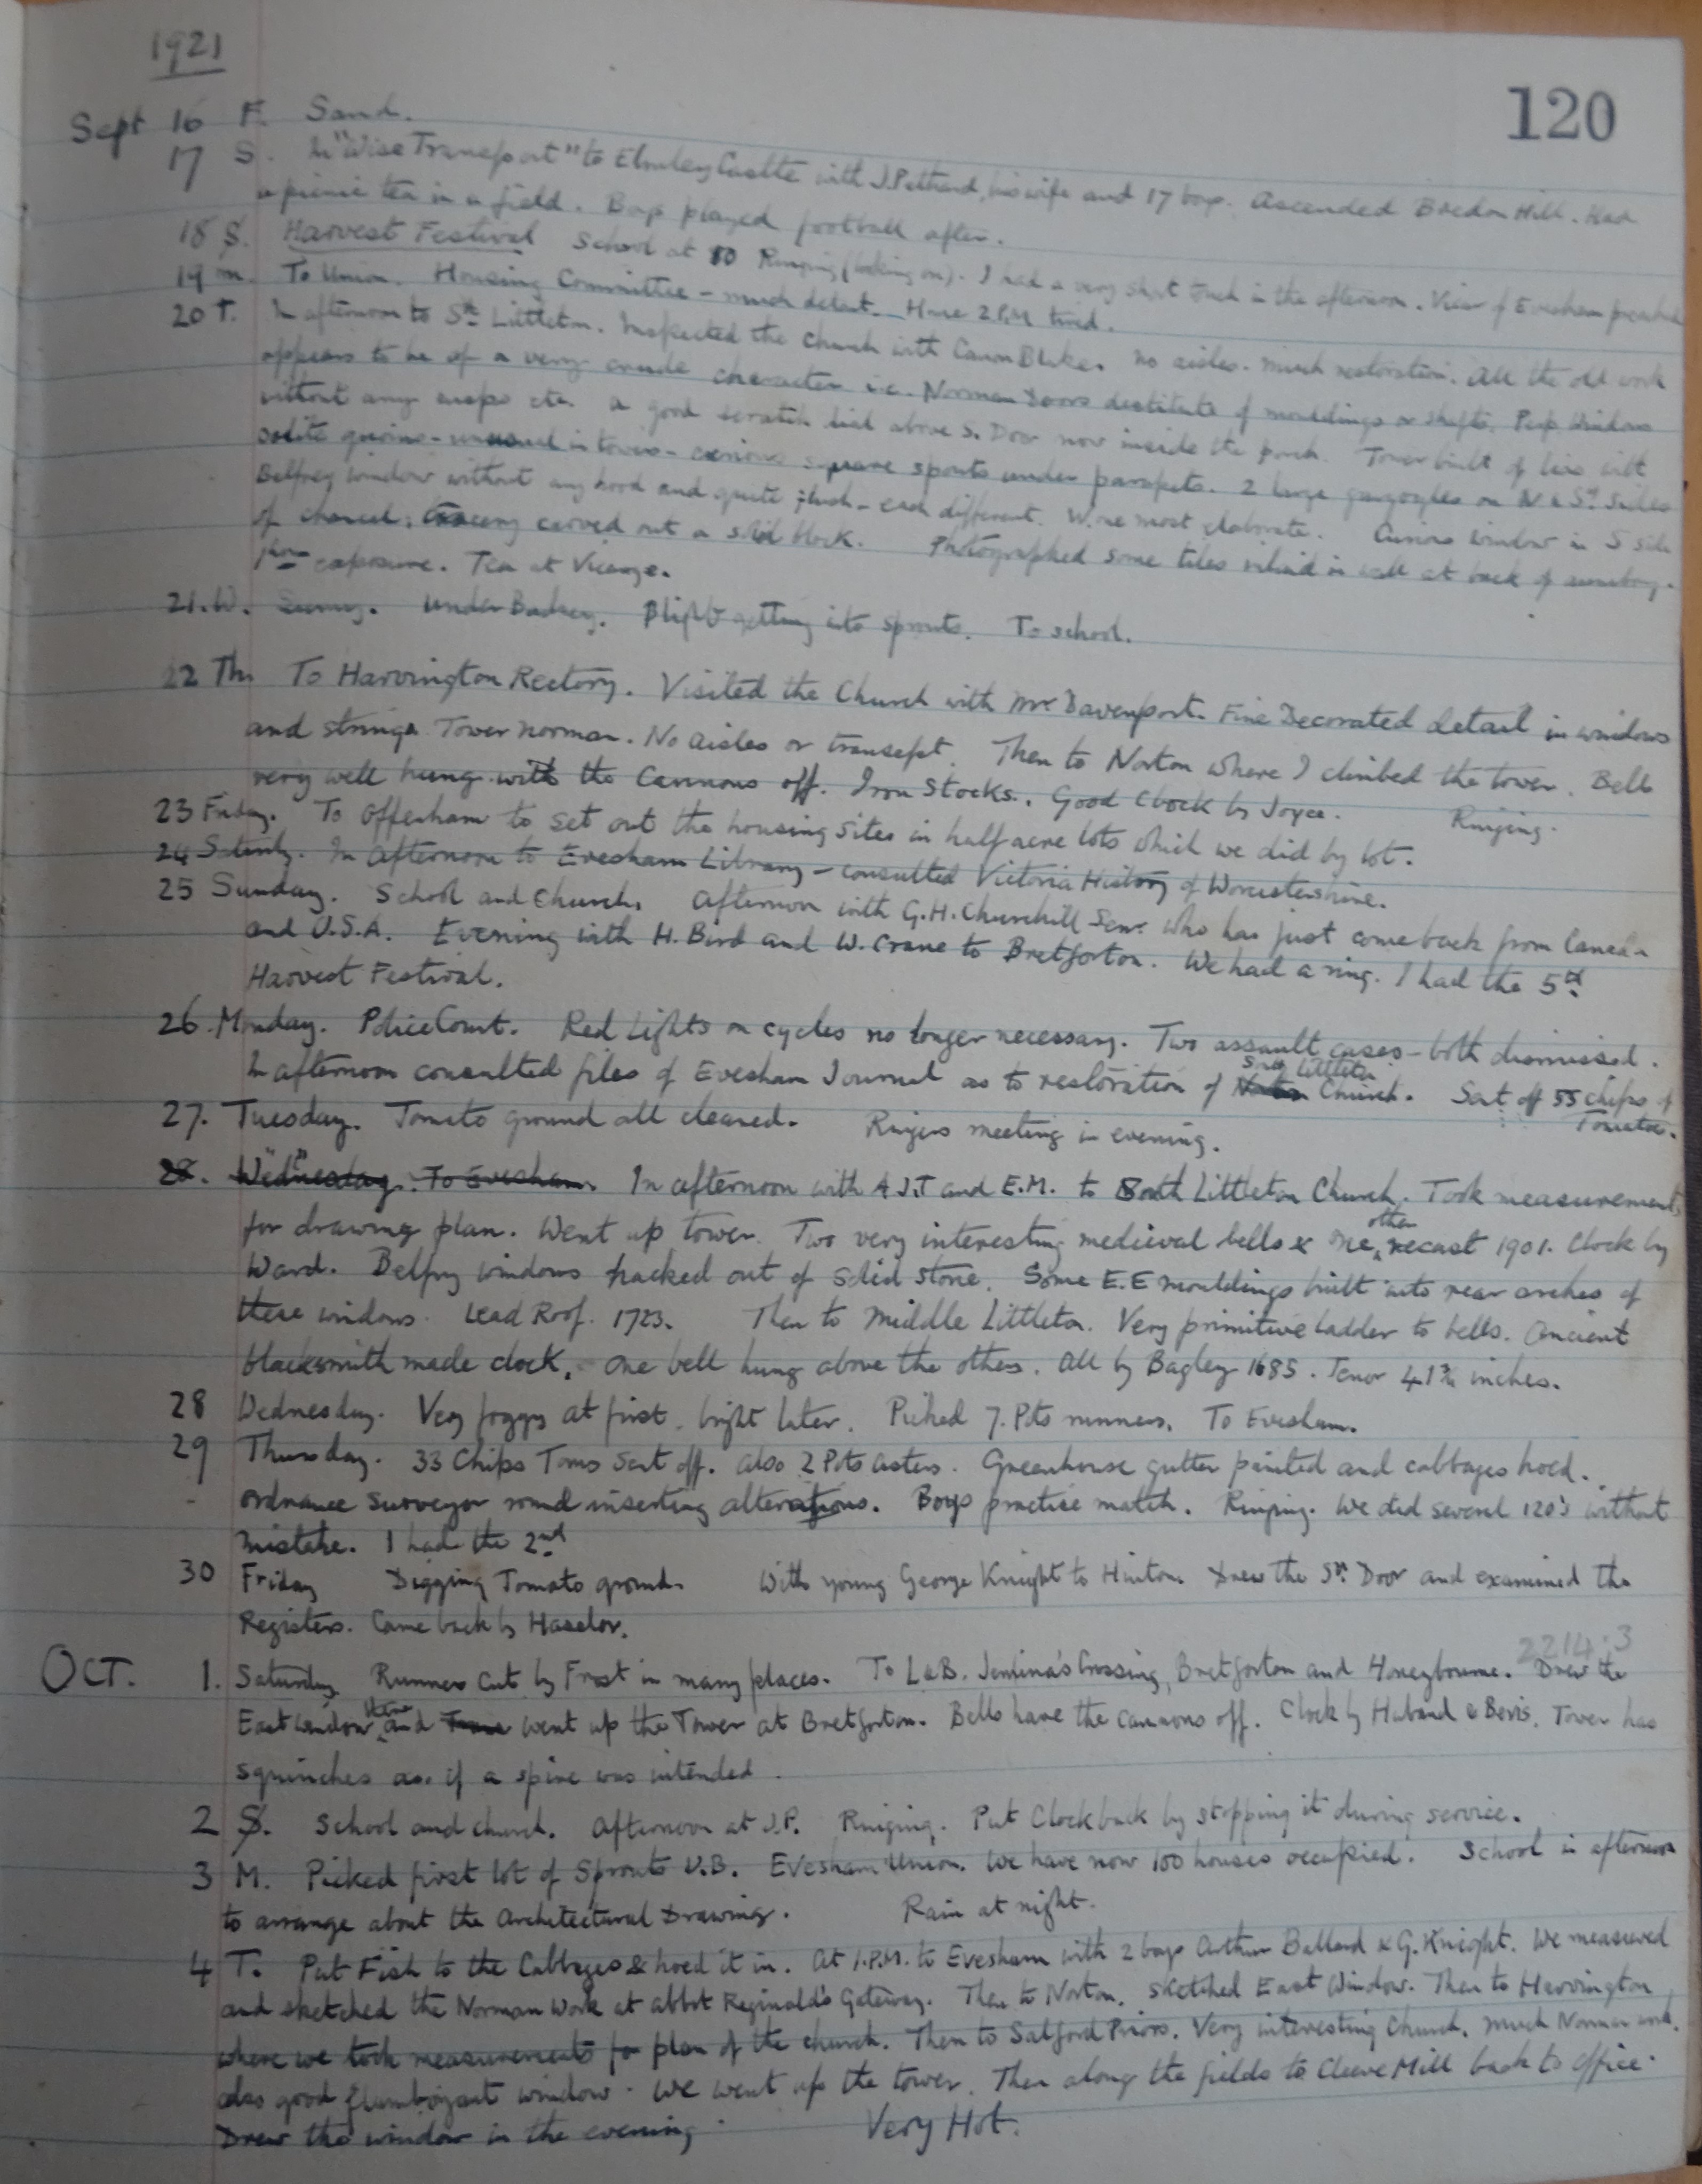 1921
120
Sept 16 F. Sand.
17 S. In "Wise Transport" to Elmley Castle with J. Pethard, his wife and 17 boys. Ascended Bredon Hill. Had
a picnic tea in a field. Boys played football after.
18 S. Harvest Festival School at 10 Ringing (looking on). I had a very short touch in the afternoon. Vicar of Evesham preached
19 M. To Union. Housing Committee - much debate. Home 2 P.M. tired.
20 T. In afternoon to Sth Littleton. Inspected the church with Canon Blake. No aisles. Much restoration. All the old work
appears to be of a very crude character i.e. Norman Doors destitute of mouldings or shafts. Perp. Windows
without any cusps etc. A good scratch dial above S. Door now inside the porch. Tower built of lias with
oolite quoins - unusual in towers - curious square spouts under parapets. 2 large gargoyles on N & Sth sides
Belfry window without any hood and quite flush - each different. W. one most elaborate. Curious window in S side
of chancel; tracery carved out a solid block. Photographed some tiles inlaid in wall at back of
exposure. Tea at Vicarage.
21. W. Sunny. Blight getting into sprouts. To school.
22 Th. To Harvington Rectory. Visited the Church with Mr Davenport. Fine Decorated detail in windows
and strings Tower Norman. No aisles or transept. Then to Norton where I climbed the tower. Bells
very well hung with the Cannons off. Iron Stocks. Good Clock by Joyce. Ringing.
23 Friday. To Offenham to set out the housing sites in half acre lots which we did by lot.
24 Saturday. In Afternoon to Evesham Library - consulted Victoria History of Worcestershire.
25 Sunday. School and Church. Afternoon with G.H. Churchill Senr. who has just come back from Canada
and U.S.A. Evening with H. Bird and W. Crane to Bretforton. We had a ring. I had the 5th.
Harvest Festival.
26. Monday. Police Court. Red Lights on cycles no longer necessary. Two assault cases - both dismissed.
In afternoon consulted files of Evesham Journal as to restoration of Norton South Littleton Church. Sent off 55 chips of
Tomatoes.
27. Tuesday. Tomato ground all cleared. Ringers meeting in evening.
28. Wednesday. To Evesham. In afternoon with A.J.T and E.M. to South Littleton Church. Took measurements
for drawing plan. Went up tower. Two very interesting medieval bells & one other recast 1901. Clock by
Ward. Belfry windows hacked out of solid stone. Some E.E mouldings built into rear arches of
these windows. Lead Roof. 1723. Then to Middle Littleton. Very primitive ladder to bells. Ancient
blacksmith made clock. One bell hung above the others. All by Bagley 1685. Tenor 41¾ inches.
28 Wednesday. Very foggy at first, bright later. Picked 7. Pots runners. To Evesham.
29 Thursday. 33 Chips Toms Sent off. also 2 Pots asters. Greenhouse gutter painted and cabbages hoed.
Ordnance Surveyor round inserting alterations. Boys practice match. Ringing. We did several 120's without
mistake. I had the 2nd
30 Friday Digging Tomato ground. With young George Knight to Hinton. Drew the Sth Door and examined the
Registers. Came back by Haselor.
2214:3
OCT. 1. Saturday Runners Cut by Frost in many places. To L&B. Jemima's Crossing, Bretforton and Honeybourne. Drew the
East window there and went up the Tower at Bretforton. Bells have the cannons off. Clock by Huband & Bevis. Tower has
squinches as if a spire was intended.
2 S. School and church. Afternoon at J.P. Ringing. Put Clock back by stopping it during service.
3 M. Picked first lot of Sprouts U.B. Evesham Union. We have now 100 houses occupied. School in afternoon
to arrange about the Architectural Drawing. Rain at night.
4 T. Put Fish to the Cabbages & hoed it in. At 1.P.M. to Evesham with 2 boys Arthur Ballard & G. Knight. We measured
and sketched the Norman Work at Abbot Reginald's Gateway. Then to Norton. Sketched East Window. Then to Harvington
where we took measurements for plan of the church. Then to Salford Priors. Very interesting Church. Much Norman work.
also good flamboyant window. We went up the tower. Then along the fields to Cleeve Mill back to Office.
Drew the window in the evening. Very Hot.